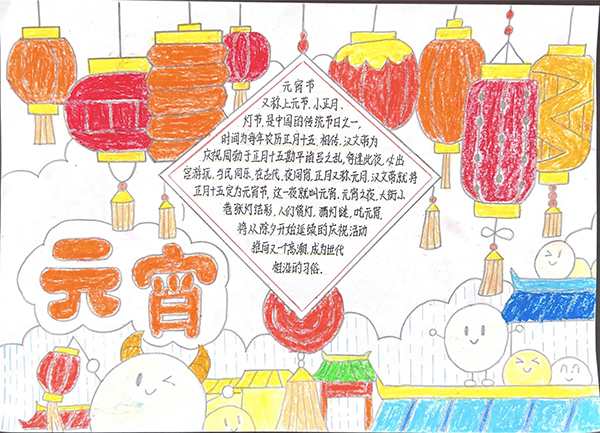 元宵节
又称上元节、小正月、
灯节,是中国的传统节日之一,
时间为每年农历正月十五。相传,汉文帝为
庆祝周勃于正月十五勘平诸吕之乱,每逢此夜,必出
宫游玩,与民同乐,在古代,夜同宵,正月又称元月,汉文帝就将
正月十五定为元宵节,这一夜就叫元宵。元宵之夜,大街小
巷张灯结彩,人们赏灯,猜灯谜,吃元宵,
将从除夕开始延续的庆祝活动
推向又一个高潮,成为世代
相沿的习俗。
元宵